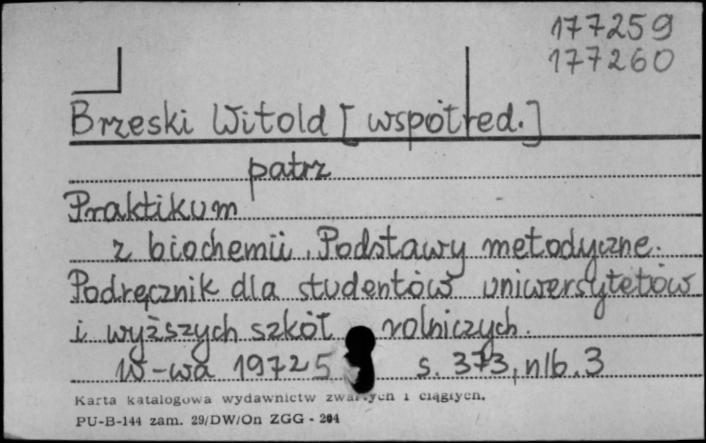 177259
177260
Brzeski Witold [współred.]
patrz
Praktikum
z biochemii. Podstawy metodyczne.
Podręcznik dla studentów uniwersytetów
i wyższych szkół rolniczych.
W-wa 1972 s. 373, nlb. 3
Karta katalogowa wydawnictw zwartych i ciągłych.
PU-B-144 zam. 29/DW/On ZGG - 204